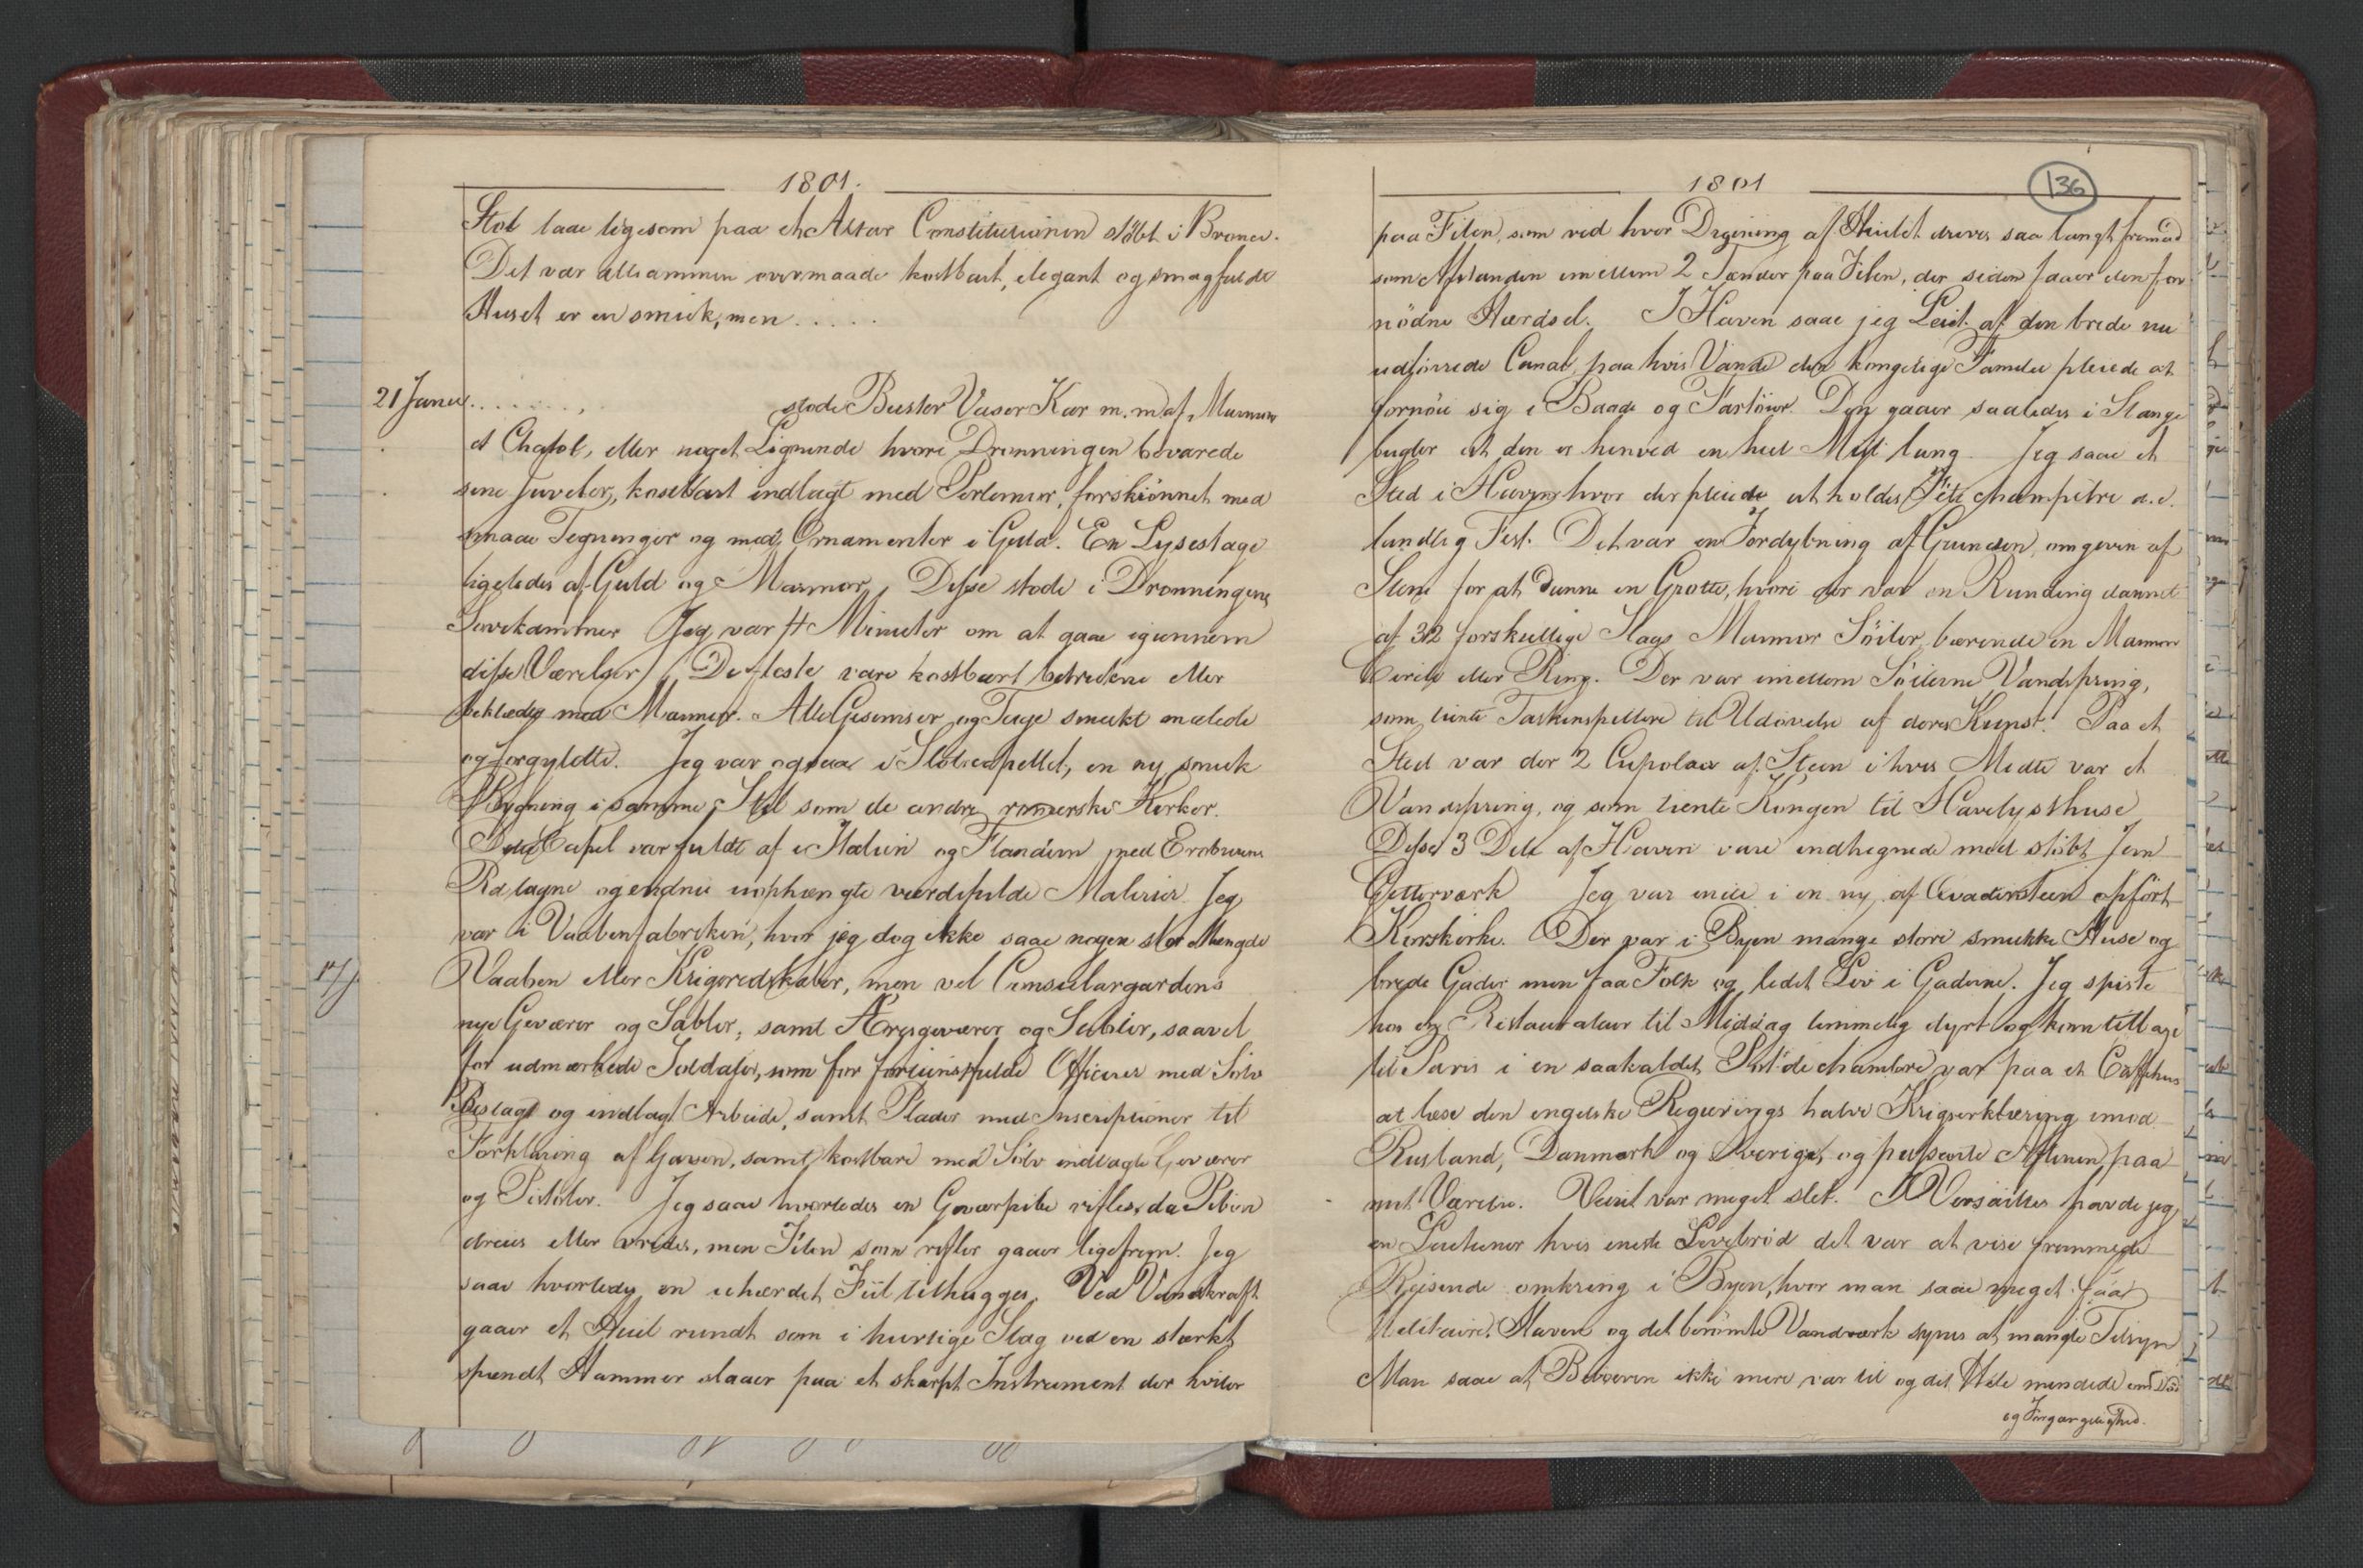 1801.
Stol laae ligesom paa et Altar Constitutionen støbt i Bronce.
Det var altsammen overmaade kostbart, elegant og smagfulde
Huset er en smuk, men .....
21 Januar ....... stode Buster Vaser Kar m. m af Marmor
et Chatol, eller noget Lignende hvori Dronningen bevarede
sine Juveler, kostbart indlagt med Perlemor, forskiönnet med
smaae Tegninger og med Ornamenter i Guld. En Lysestage
ligeledes af Guld og Marmor, Disse stode i Dronningens
Sovekammer Jeg var 4 Minuter om at gaae igiennem
disse Værelser) De fleste vare kostbart betrukne eller
beklædt med Marmor. Alle Gesimser og Tage smukt malede
og forgyldte. Jeg var ogsaa i Slotscapellet, en ny smuk
Bygning i samme Stil som de andre romerske Kirker.
Capel var fuldt af i Italien og Flandern med Erobrerens
Ret tagne og endnu uophængte værdifulde Malerier. Jeg
var i Vaabenfabriken, hvor jeg dog ikke saae nogen stor Mængde
Vaaben eller Krigsredskaber, men vel Consulargardens
nye Geværer og Sabler, samt Æresgeværer og Sabler, saavel
for udmærkede Soldater, som for fortienstfulde Officerer med Sölv
Beslag og indlagt Arbeide, samt Plader med Inscriptioner til
Forklaring af Gaven, samt kostbare med Sölv indlagte Geværer
og Pistoler. Jeg saae hvorledes en Geværpibe rifles, da Piben
dreies eller vrides, men Filen som rifler gaaer ligefrem. Jeg
saae hvorledes en uhærdet Fiil tilhugges. Ved Vandkraft
gaaer et Hiul rundt som i hurtige Slag ved en stærkt
spændt Hammer slaaer paa et skarpt Instrument der hviler
1801
136
paa Filen, som ved hver Dreining af Hiulet drives saa langt fremad
som Afstanden imellem 2 Tænder paa Filen, der siden faaer den for
nödne Hærdsel. I Haven saae jeg Leiet af den brede nu
udtörrede Canal, paa hvis Vande den kongelige Familie pleiede at
fornöie sig i Baade og Fartöier. Den gaaer saaledes i Slange
bugter at den er henved en heel Miil lang. Jeg saae et
Sted i Haven hvor der pleiede at holdes Fête champêtre a.e.
landlig Fest. Det var en Fordybning af Grunden, omgiven af
Stene for at danne en Grotte, hvori der var en Runding dannet
af 32 forskiellige Slags Marmor Söiler, bærende en Marmor
Circel eller Ring. Der var imellem Söilerne Vandspring,
som tiente Taskenspillere til Udövelse af deres Kunst. Paa et
Sted var der 2 Cupolaer af Steen i hvis Midte var et
Vandspring, og som tiente Kongen til Havelysthuse
Disse 3 Dele af Haven vare indhegnede med støbt Jern
Gitterværk Jeg var inde i en ny af Qvadersteen opfört
Korskirke. Der var i Byen mange store smukke Huse og
brede Gader men faa Folk og ledet Liv i Gaderne. Jeg spiste
hos en Restaurateur til Middag temmelig dyrt og kom tilbage
til Paris i en saakaldet Pot de chambre var paa et Caffehus
at læse den engelske Regierings halve Krigserklæring imod
Rusland, Danmark og Sverige, og passerte Aftenen paa
mit Værelse. Veiret var meget slet. I Versailles havde jeg
en hvis eneste Levebröd det var at vise fremmede
Reisende omkring i Byen, hvor man saae meget faa
Militaire. Haven og det berömte Vandværk synes at mangle Tilsyn
Man saae at Beboeren ikke mere var til og det Hele mindede om
og Forgængelighed.